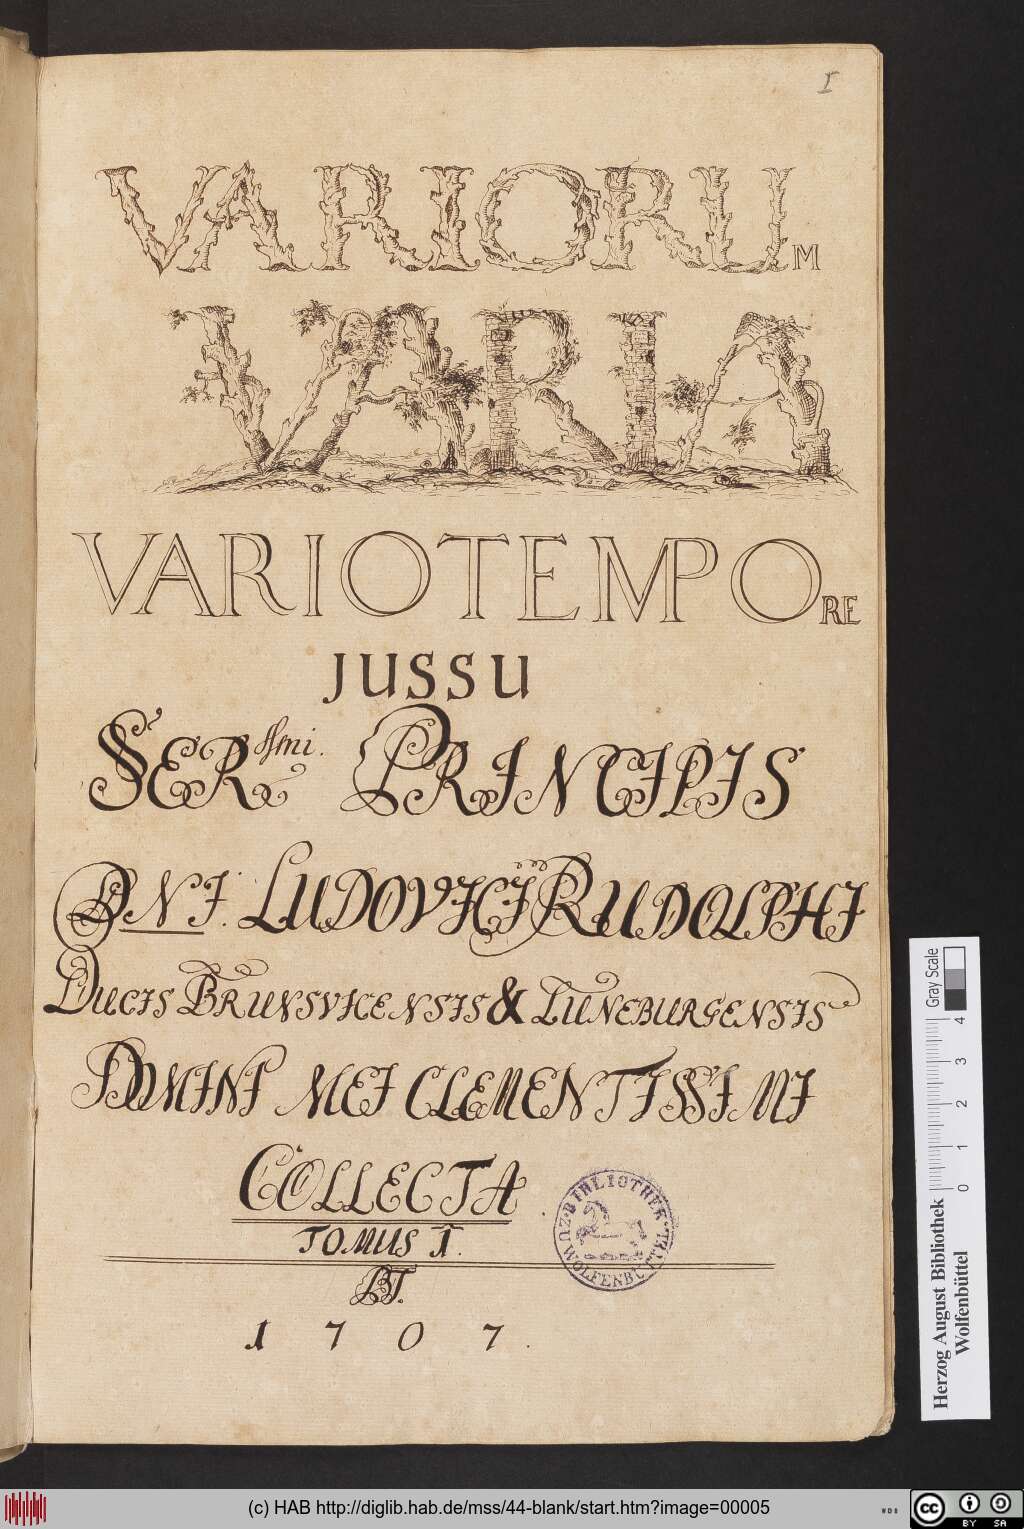 I
VARIORUM
VARIA
VARIO TEMPORE
JUSSU
SERssmi. PRINCIPIS
DNI. LUDOVICI RUDOLPHI
DUCIS BRUNSVICENSIS & LUNEBURGENSIS
DOMINI MEI CLEMENTISSIMI
COLLECTA
TOMUS I.
1707.
BIBLIOTHEK
ZU WOLFENBÜTTEL
Gray Scale
0 1 2 3 4
Herzog August Bibliothek
Wolfenbüttel
(c) HAB http://diglib.hab.de/mss/44-blank/start.htm?image=00005
WDB
cc BY SA